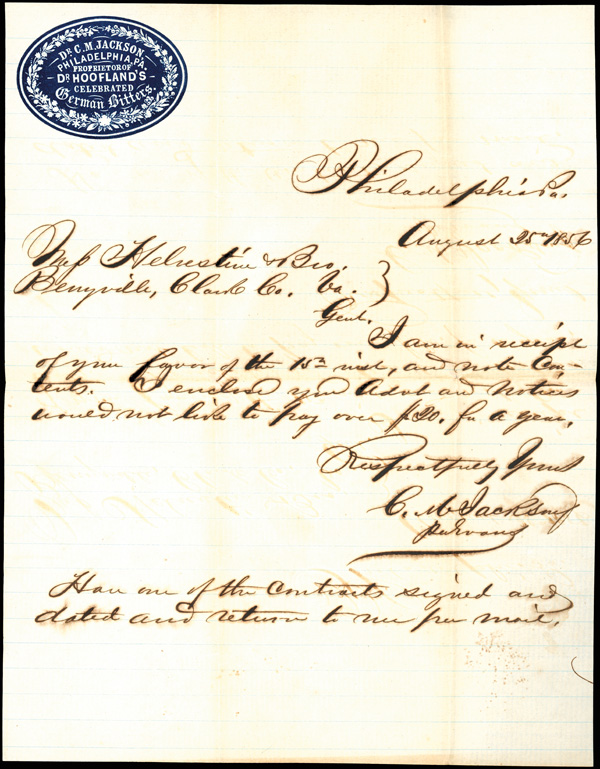 DR. C. M. JACKSON,
PHILADELPHIA, PA.
PROPRIETOR OF
DR. HOOFLAND'S
CELEBRATED
German Bitters.
Philadelphia Pa.
August 25th 1856
Mess Helvestine & Bro,
Berryville, Clark Co. Va. }
Gent.
I am in receipt
of your favor of the 15th inst, and note Con-
tents. I enclose you Advt and Notices
would not like to pay over $20. for a year.
Respectfully Yours
C. M Jackson
per Evans
Have one of the Contracts signed and
dated and return to me per mail.